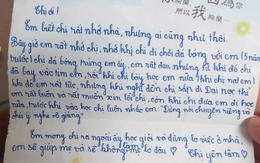 你
因為
所以我
Chị ơi!
Em biết chị rất nhớ nhà, nhưng ai cũng như thế.
Bây giờ em rất nhớ chị. nhớ khi chị chơi đá bóng với em (3 năm
trước) chị đá bóng trúng em ấy, em rất đau nhưng từ khi đó chị
đá bay vào tim em, rồi khi chị dạy học em nữa (khi chị nạt em)
khi đó em rất tức, nhưng khi nghĩ đến chị sắp đi Đại học thì
em rất buồn và rất muốn xin lỗi chị, còn khi chị đưa em đi học
nữa, trước khi vào học chị luôn nhắc em "Đừng nói chuyện riêng và
chú ý nghe cô giảng".
Em mong chị ra ngoài ấy học giỏi và đừng lo việc ở nhà,
em sẽ giúp mẹ và sẽ không
Chị yên tâm ♡